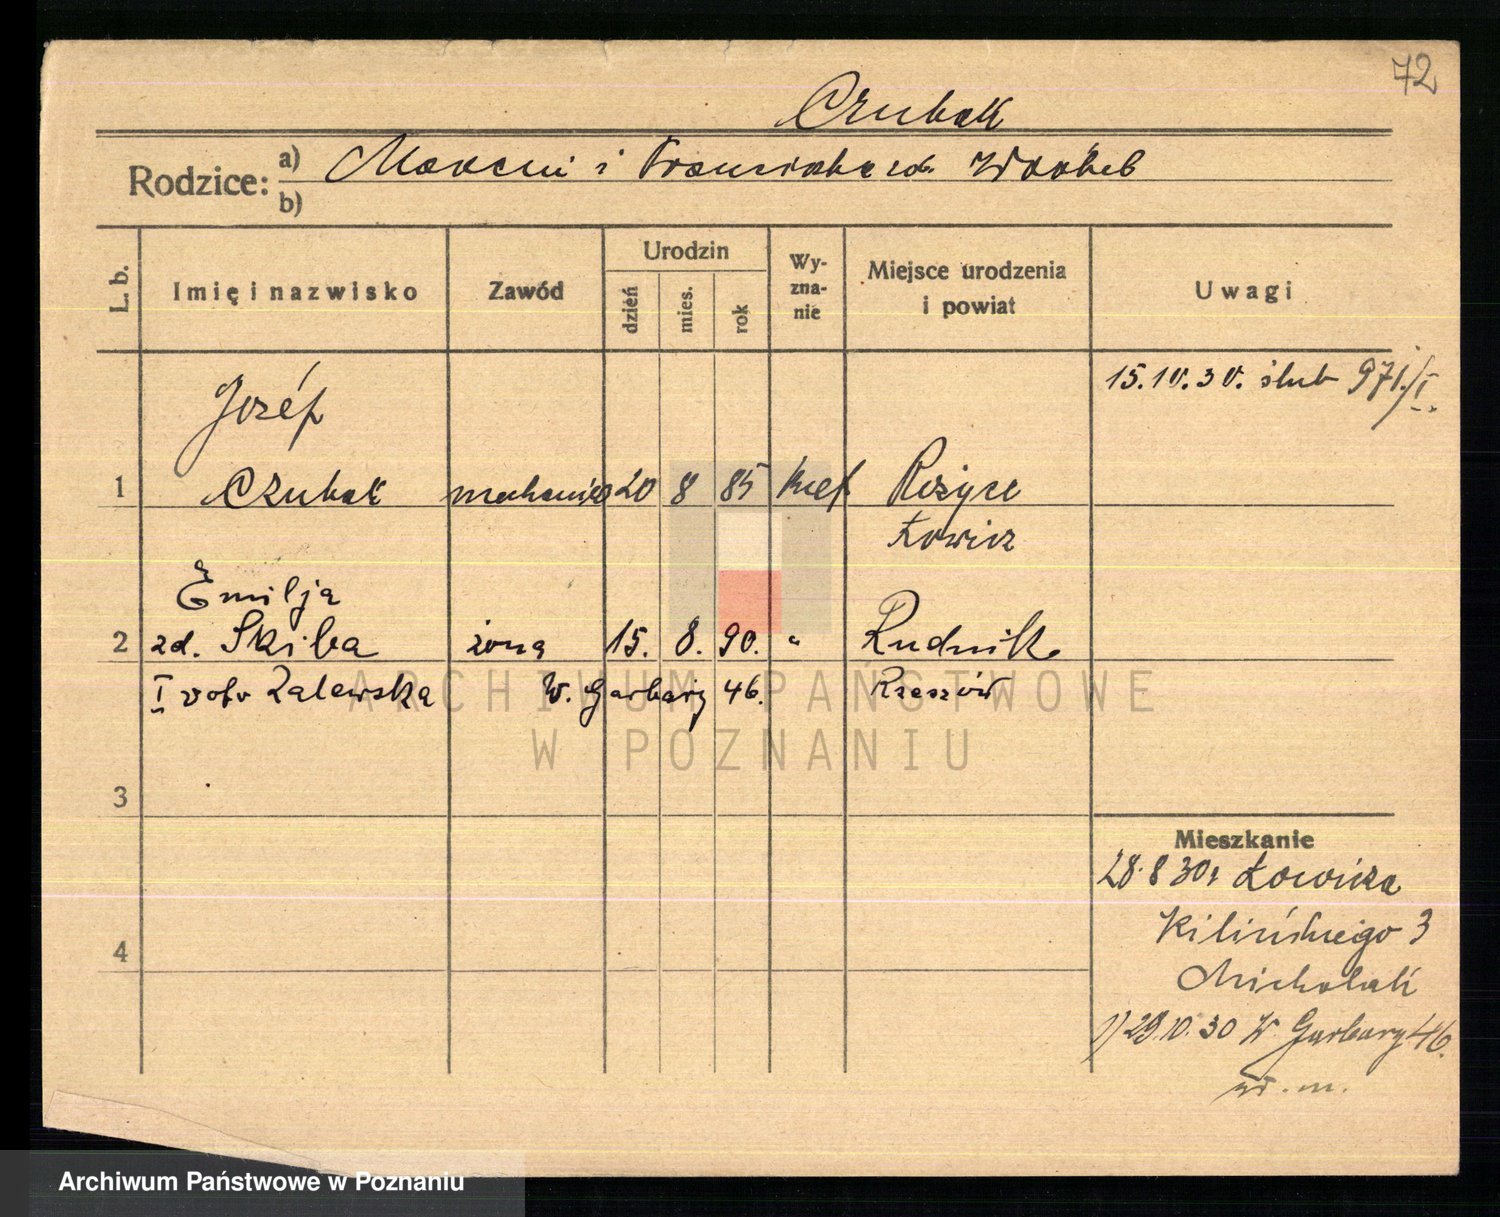 72
Czubak
Rodzice: a) Marcin i Franciszka zd. Wróbel
b)
L. b.
Imię i nazwisko
Zawód
Urodzin
dzień
mies.
rok
Wy-
zna-
nie
Miejsce urodzenia
i powiat
Uwagi
15.10.30. ślub 971./I.
Józéf
1 Czubak mechanik 20 8 85 Łowicz
Emilja
2 zd. Skiba żona 15. 8. 90. " Rudnik
I voto Zalewska W. Garbary 46. Rzeszów
3
4
Mieszkanie
28.8 30 z Łowicza
Kilińskiego 3
Michalak
1) 29.10.30 W Garbary 46.
wł. m.
ARCHIWUM PAŃSTWOWE
W POZNANIU
Archiwum Państwowe w Poznaniu